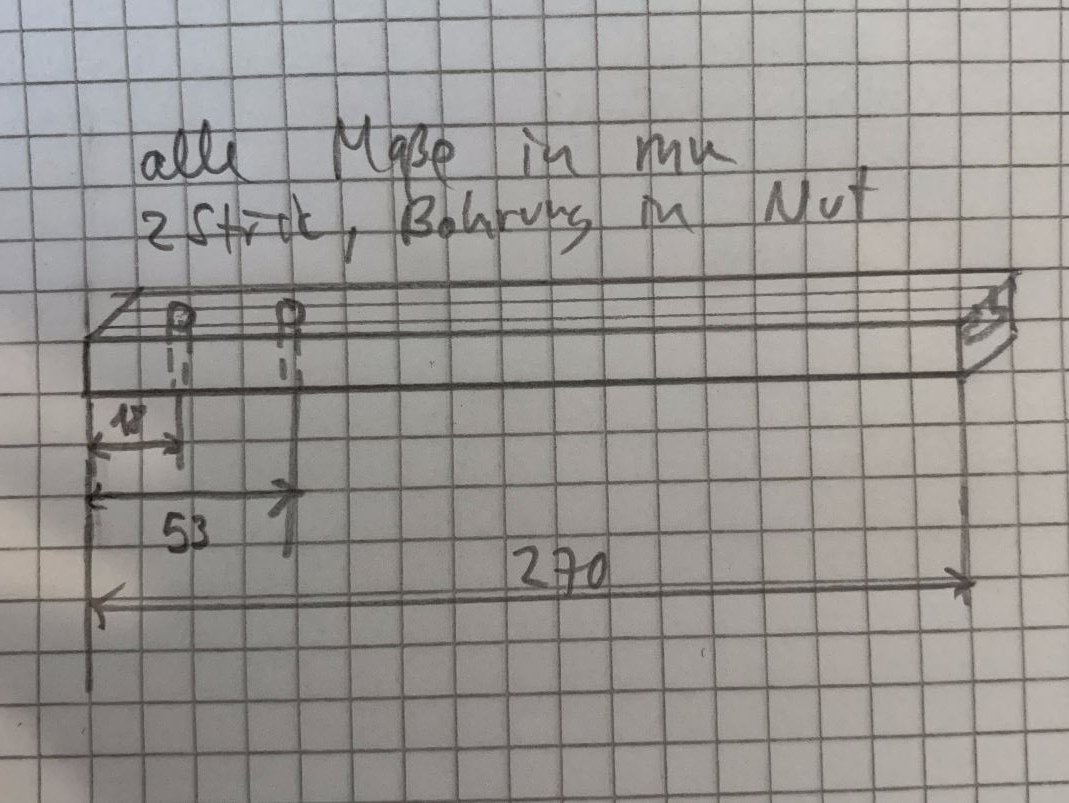 alle Maße in mm
2 Stück, Bohrung in Nut
18
53
270